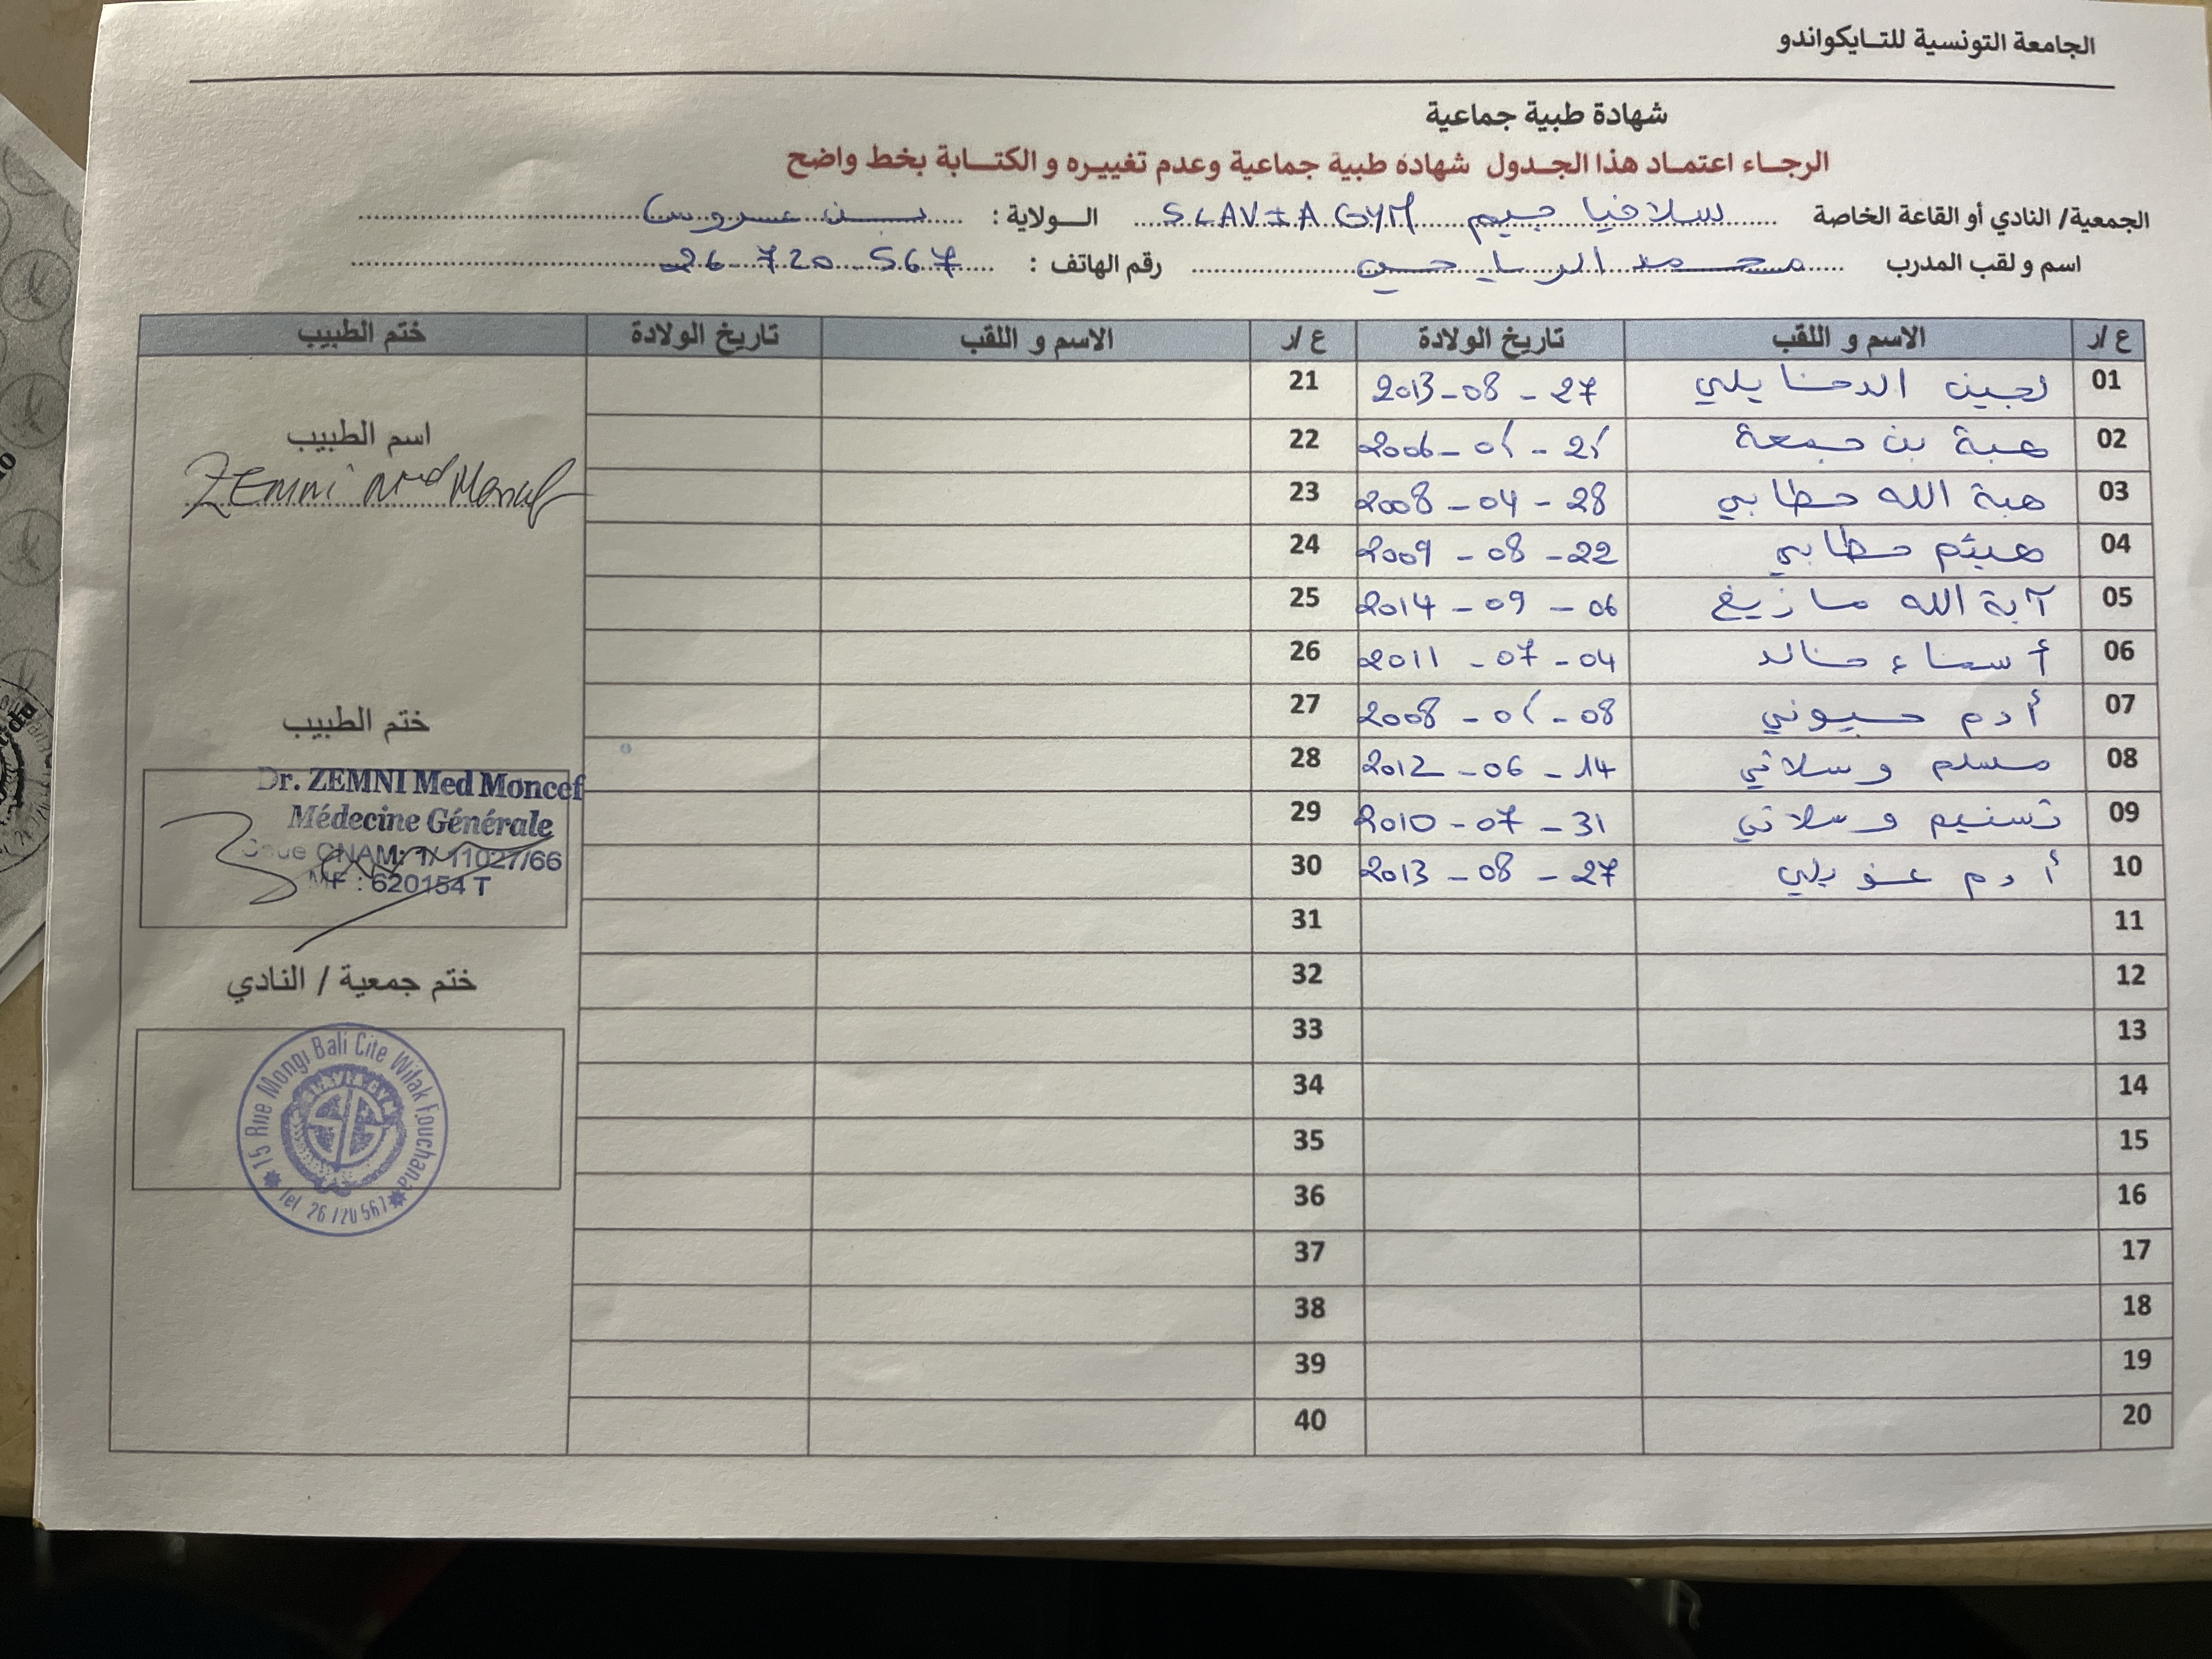 الجامعة التونسية للتايكواندو
شهادة طبية جماعية
الرجاء اعتماد هذا الجدول شهادة طبية جماعية وعدم تغييره و الكتابة بخط واضح
الجمعية/ النادي أو القاعة الخاصة سلافيا جيم SLAVIA GYM الولاية : بن عروس
اسم و لقب المدرب محمد الرياحي رقم الهاتف : 26 720 567
ع/ر الاسم و اللقب تاريخ الولادة ع/ر الاسم و اللقب تاريخ الولادة ختم الطبيب
01 لجين الدخايلي 2013-08-27 21
02 هبة بن جمعة 22
03 هبة الله حطابي 2008-04-28 23
04 هيثم حطابي 2009-08-22 24
05 آية الله مازيغ 2014-09-06 25
06 أسماء خالد 2011-07-04 26
07 أدم 27
08 مسلم وسلاتي 2012-06-14 28
09 تسنيم وسلاتي 2010-07-31 29
10 أدم 2013-08-27 30
11 31
12 32
13 33
14 34
15 35
16 36
17 37
18 38
19 39
20 40
اسم الطبيب
ZEmni Med Moncef
ختم الطبيب
Dr. ZEMNI Med Moncef
Médecine Générale
CNAM: 1/ 11027/66
MF : 620154 T
ختم جمعية / النادي
15 Rue Mongi Bali Cite Wifak Fouchana
SLAVIA GYM
Tel 26 720 567